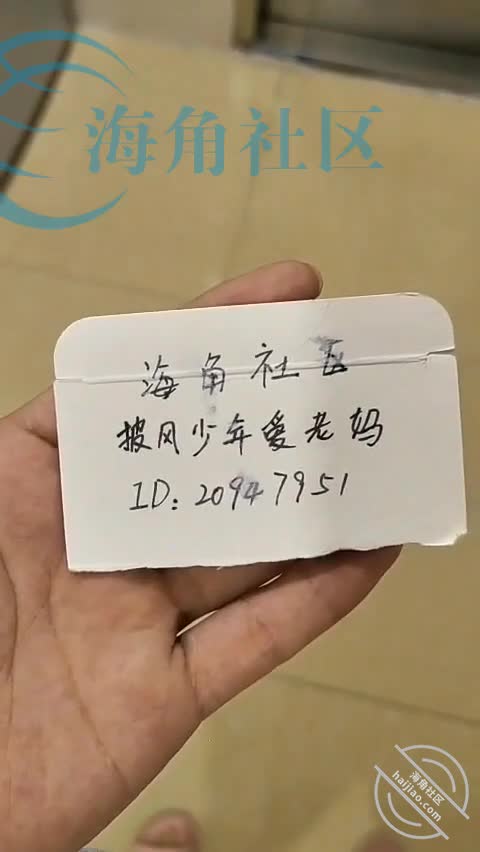 海角社区
海角社区
披风少年爱老妈
ID: 20947951
海角社区
haijiao.com